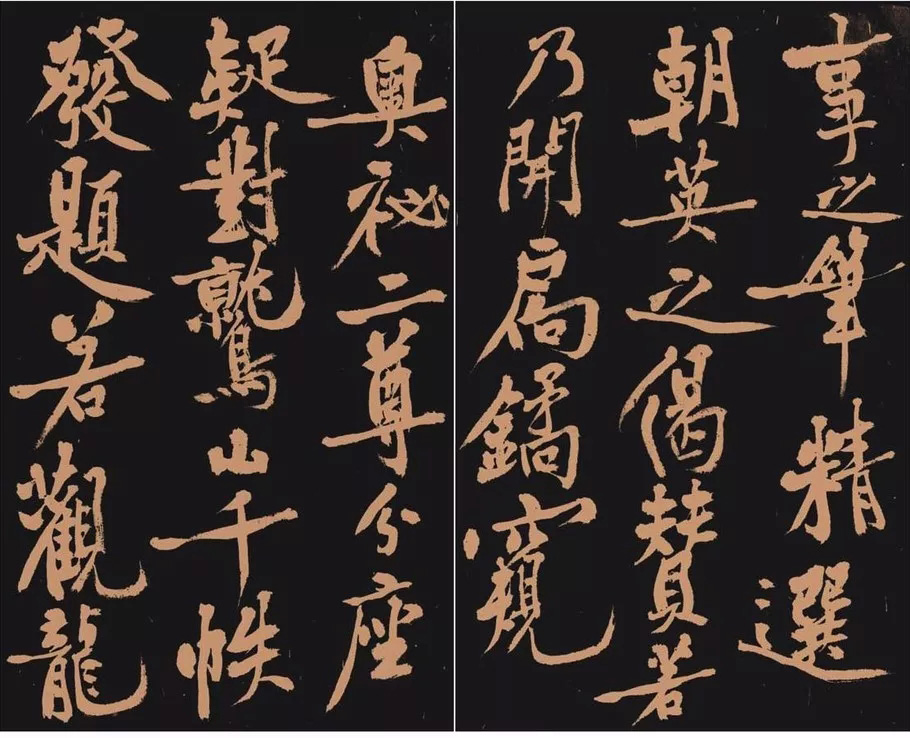 事之筆精選
朝英之偈贊若
乃開扃鐍窺
奧祕二尊分座
疑對鷲山千帙
發題若觀龍